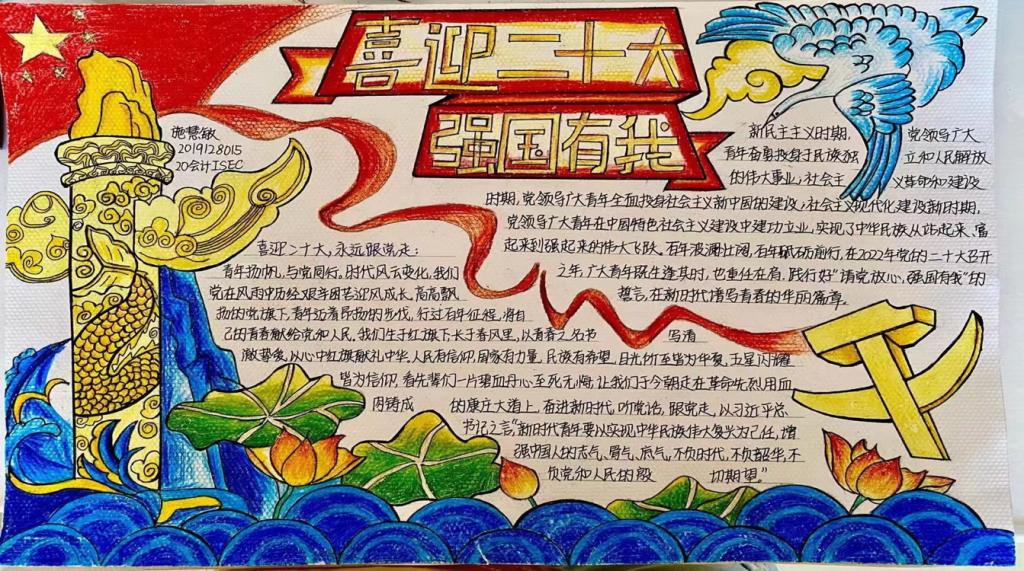 喜迎二十大
强国有我
施慧敏
2019128015
20会计ISEC
新民主主义时期,党领导广大
青年奋勇投身于民族独立和人民解放
的伟大事业,社会主义革命和建设
时期,党领导广大青年全面投身社会主义新中国的建设,社会主义现代化建设新时期,
党领导广大青年在中国特色社会主义建设中建功立业,实现了中华民族从站起来、富
起来到强起来的伟大飞跃。百年波澜壮阔,百年砥砺前行,在2022年党的二十大召开
之年,广大青年既生逢其时,也重任在肩,践行好“请党放心,强国有我”的
誓言,在新时代谱写青春的华丽篇章。
喜迎二十大,永远跟党走:
青年扬帆,与党同行,时代风云变化,我们
党在风雨中历经艰辛困苦迎风成长,高高飘
扬的党旗下,青年迈着昂扬的步伐,行过百年征程,将自
己的青春献给党和人民,我们生于红旗下长于春风里,以青春之名书写清
澈挚爱,以心中红旗献礼中华,人民有信仰,国家有力量,民族有希望,目光所至皆为华夏,五星闪耀
皆为信仰,看先辈们一片碧血丹心至死无悔,让我们于今朝走在革命先烈用血
肉铸成的康庄大道上,奋进新时代,听党话,跟党走,以习近平总
书记之言“新时代青年要以实现中华民族伟大复兴为己任,增
强中国人的志气、骨气、底气,不负时代,不负韶华,不
负党和人民的殷切期望。”